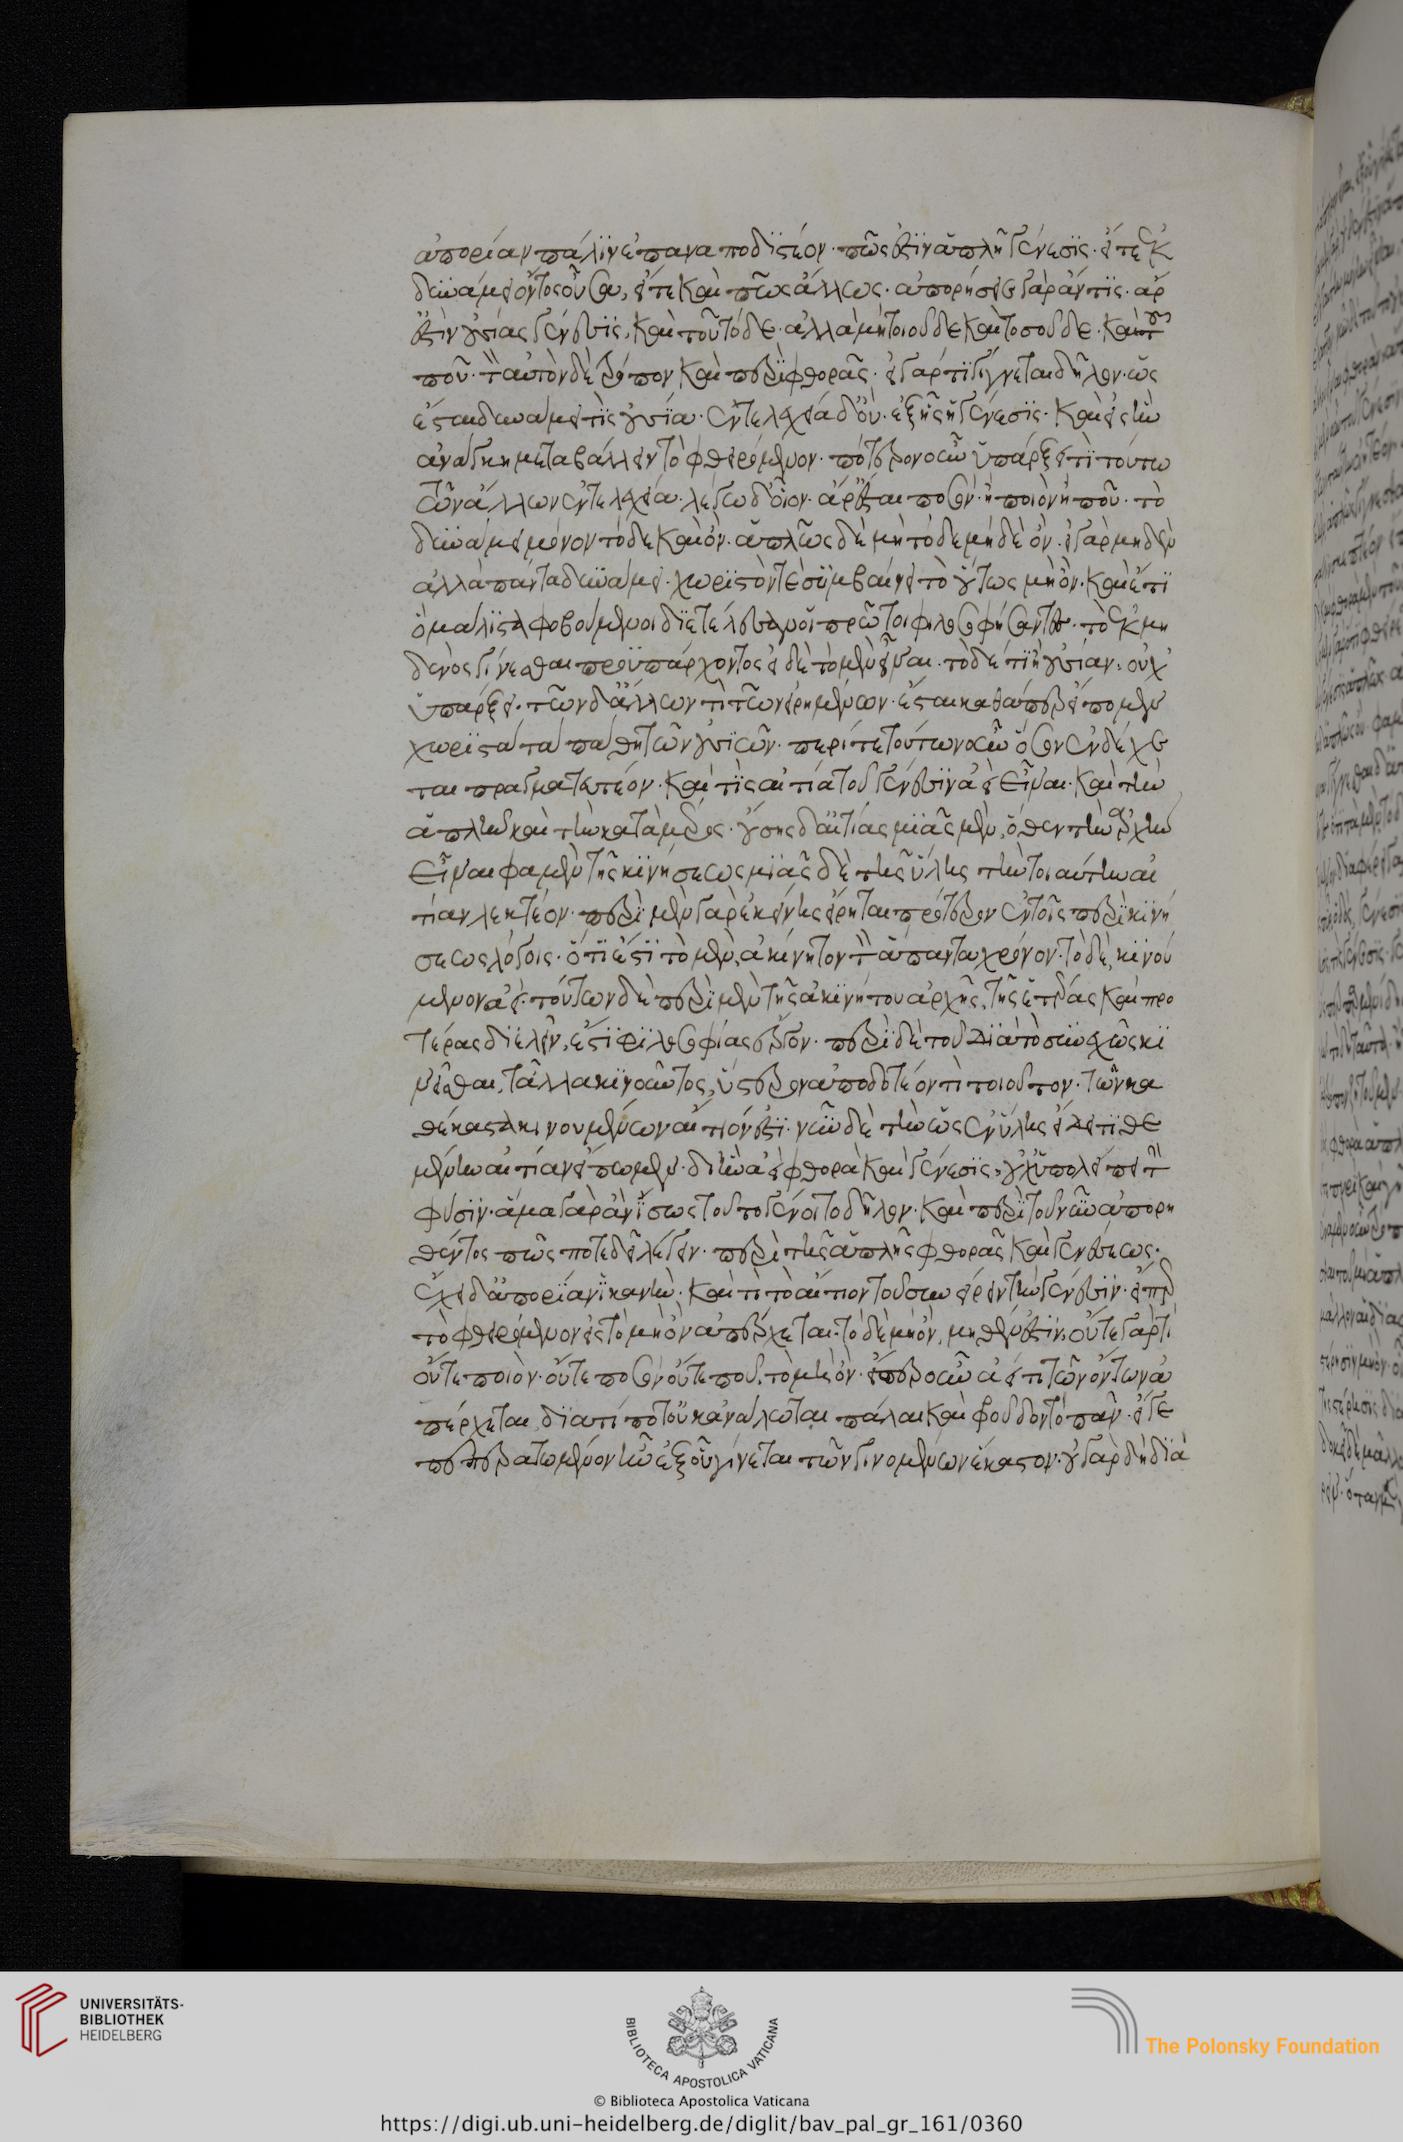 ἀπορίαν πάλιν ἐπαναποδιστέον. πῶς ἐστὶν ἁπλῆ γένεσις. εἴτ' ἐκ
δυνάμει ὄντος οὖσα, εἴτε καὶ πως ἄλλως. ἀπορήσειε γὰρ ἄν τις. ἆρ'
ἐστὶν οὐσίας γένεσις, καὶ τοῦ τόδε. ἀλλὰ μὴ τοιοῦδε καὶ τοσοῦδε. καὶ
ποῦ. τὸν αὐτὸν δὲ τρόπον καὶ περὶ φθορᾶς. εἰ γάρ τι γίγνεται δῆλον. ὡς
ἔσται δυνάμει τὶς οὐσία. ἐντελεχείᾳ δ' οὔ. ἐξ ἧς ἡ γένεσις. καὶ εἰς ἣν
ἀνάγκη μεταβάλλειν τὸ φθειρόμενον. πότερον οὖν ὑπάρξει τὶ τούτω
τῶν ἄλλων ἐντελεχείᾳ. λέγω δ' οἷον. ἆρ' ἔσται ποσὸν. ἢ ποιὸν ἢ ποῦ. τὸ
δυνάμει μόνον τόδε καὶ ὄν. ἁπλῶς δὲ μὴ τόδε μηδὲ ὄν. εἰ γὰρ μηδὲν
ἀλλὰ πάντα δυνάμει. χωριστόν τε συμβαίνει τὸ οὕτως μὴ ὄν. καὶ ἔτι
ὃ μάλιστα φοβούμενοι διετέλεσαν οἱ πρῶτοι φιλοσοφήσαντες. τὸ ἐκ μη
δενὸς γίνεσθαι προϋπάρχοντος εἰ δὲ τὸ μὲν εἶναι. τόδέ τι ἢ οὐσίαν. οὐχ'
ὑπάρξει. τῶν δ' ἄλλων τὶ τῶν εἰρημένων. ἔσται καθάπερ εἴπομεν
χωριστὰ τὰ πάθη τῶν οὐσιῶν. περί τε τούτων οὖν ὅσον ἐνδέχε
ται πραγματευτέον. καὶ τίς αἰτία τοῦ γένεσιν ἀεὶ εἶναι. καὶ τὴν
ἁπλῆν καὶ τὴν κατὰ μέρος. οὔσης δ' αἰτίας μιᾶς μὲν, ὅθεν τὴν ἀρχὴν
εἶναι φαμὲν τῆς κινήσεως μιᾶς δὲ τῆς ὕλης τὴν τοιαύτην αἰ
τίαν λεκτέον. περὶ μὲν γὰρ ἐκείνης εἴρηται πρότερον ἐν τοῖς περὶ κινή
σεως λόγοις. ὅτι ἐστὶ τὸ μὲν, ἀκίνητον τὸν ἅπαντα χρόνον. τὸ δὲ, κινού
μενον ἀεί. τούτων δὲ περὶ μὲν τῆς ἀκινήτου ἀρχῆς, τῆς ἑτέρας καὶ προ
τέρας διελεῖν, ἐστὶ φιλοσοφίας ἔργον. περὶ δὲ τοῦ διὰ τὸ συνεχῶς κι
νεῖσθαι, τἆλλα κινοῦντος, ὕστερον ἀποδοτέον τί τοιοῦτον. τῶν κα
θέκαστα κινουμένων αἴτιόν ἐστι. νῦν δὲ τὴν ὡς ἐν ὕλης εἴδει τιθε
μένην αἰτίαν εἴπωμεν. δι' ἣν ἀεὶ φθορὰ καὶ γένεσις, οὐχ ὑπολείπει τὴν
φύσιν. ἅμα γὰρ ἂν ἴσως τοῦτο γένοιτο δῆλον. καὶ περὶ τοῦ νῦν ἀπορη
θέντος πῶς ποτε δεῖ λέγειν. περὶ τῆς ἁπλῆς φθορᾶς καὶ γενέσεως.
ἔχει δ' ἀπορίαν ἱκανὴν. καὶ τί τὸ αἴτιον τοῦ συνείρειν τὴν γένεσιν. εἴπερ
τὸ φθειρόμενον εἰς τὸ μὴ ὂν ἀπέρχεται. τὸ δὲ μὴ ὄν, μηθέν ἐστιν, οὔτε γάρ τι
οὔτε ποιὸν. οὔτε ποσὸν οὔτε ποῦ, τὸ μὴ ὄν. εἴπερ οὖν ἀεί τι τῶν ὄντων ἀ
πέρχεται, διατί ποτ' οὐκ ἀνάλωται πάλαι καὶ φροῦδον τὸ πᾶν. εἴ γε
πεπερασμένον ἦν ἐξ οὗ γίνεται τῶν γινομένων ἕκαστον. οὐ γὰρ δὴ διὰ
UNIVERSITÄTS-
BIBLIOTHEK
HEIDELBERG
BIBLIOTECA APOSTOLICA VATICANA
The Polonsky Foundation
© Biblioteca Apostolica Vaticana
https://digi.ub.uni-heidelberg.de/diglit/bav_pal_gr_161/0360